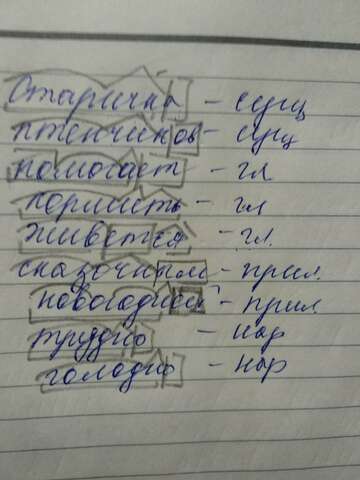 Старичка - сущ
птенчиков - сущ
помогает - гл
кормить - гл
живётся - гл.
сказочным - прил.
новогодней - прил
трудно - нар
голодно - нар